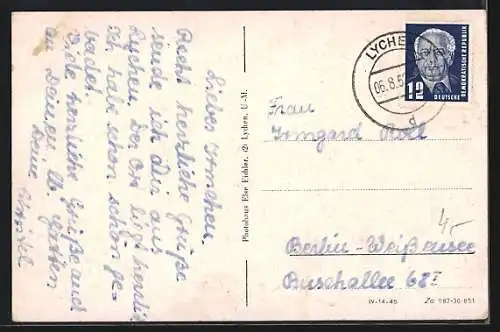 Liebes Irmchen.
Recht herzliche Grüße
sende ich Dir aus
Lychen. Der Ort liegt herrlich
Ich habe schon schön ge=
badet.
Viele herzliche Grüße auch
an Deinen lb. Gatten
Deine
Photohaus Else Eichler, Lychen, U.-M.
LYCHEN
06.8.5
d
12
DEUTSCHE
DEMOKRATISCHE REPUBLIK
Frau
Irmgard Roll
Berlin-Weißensee
Buschallee 68I
4,-
IV-14-45 Zo 687-30 851